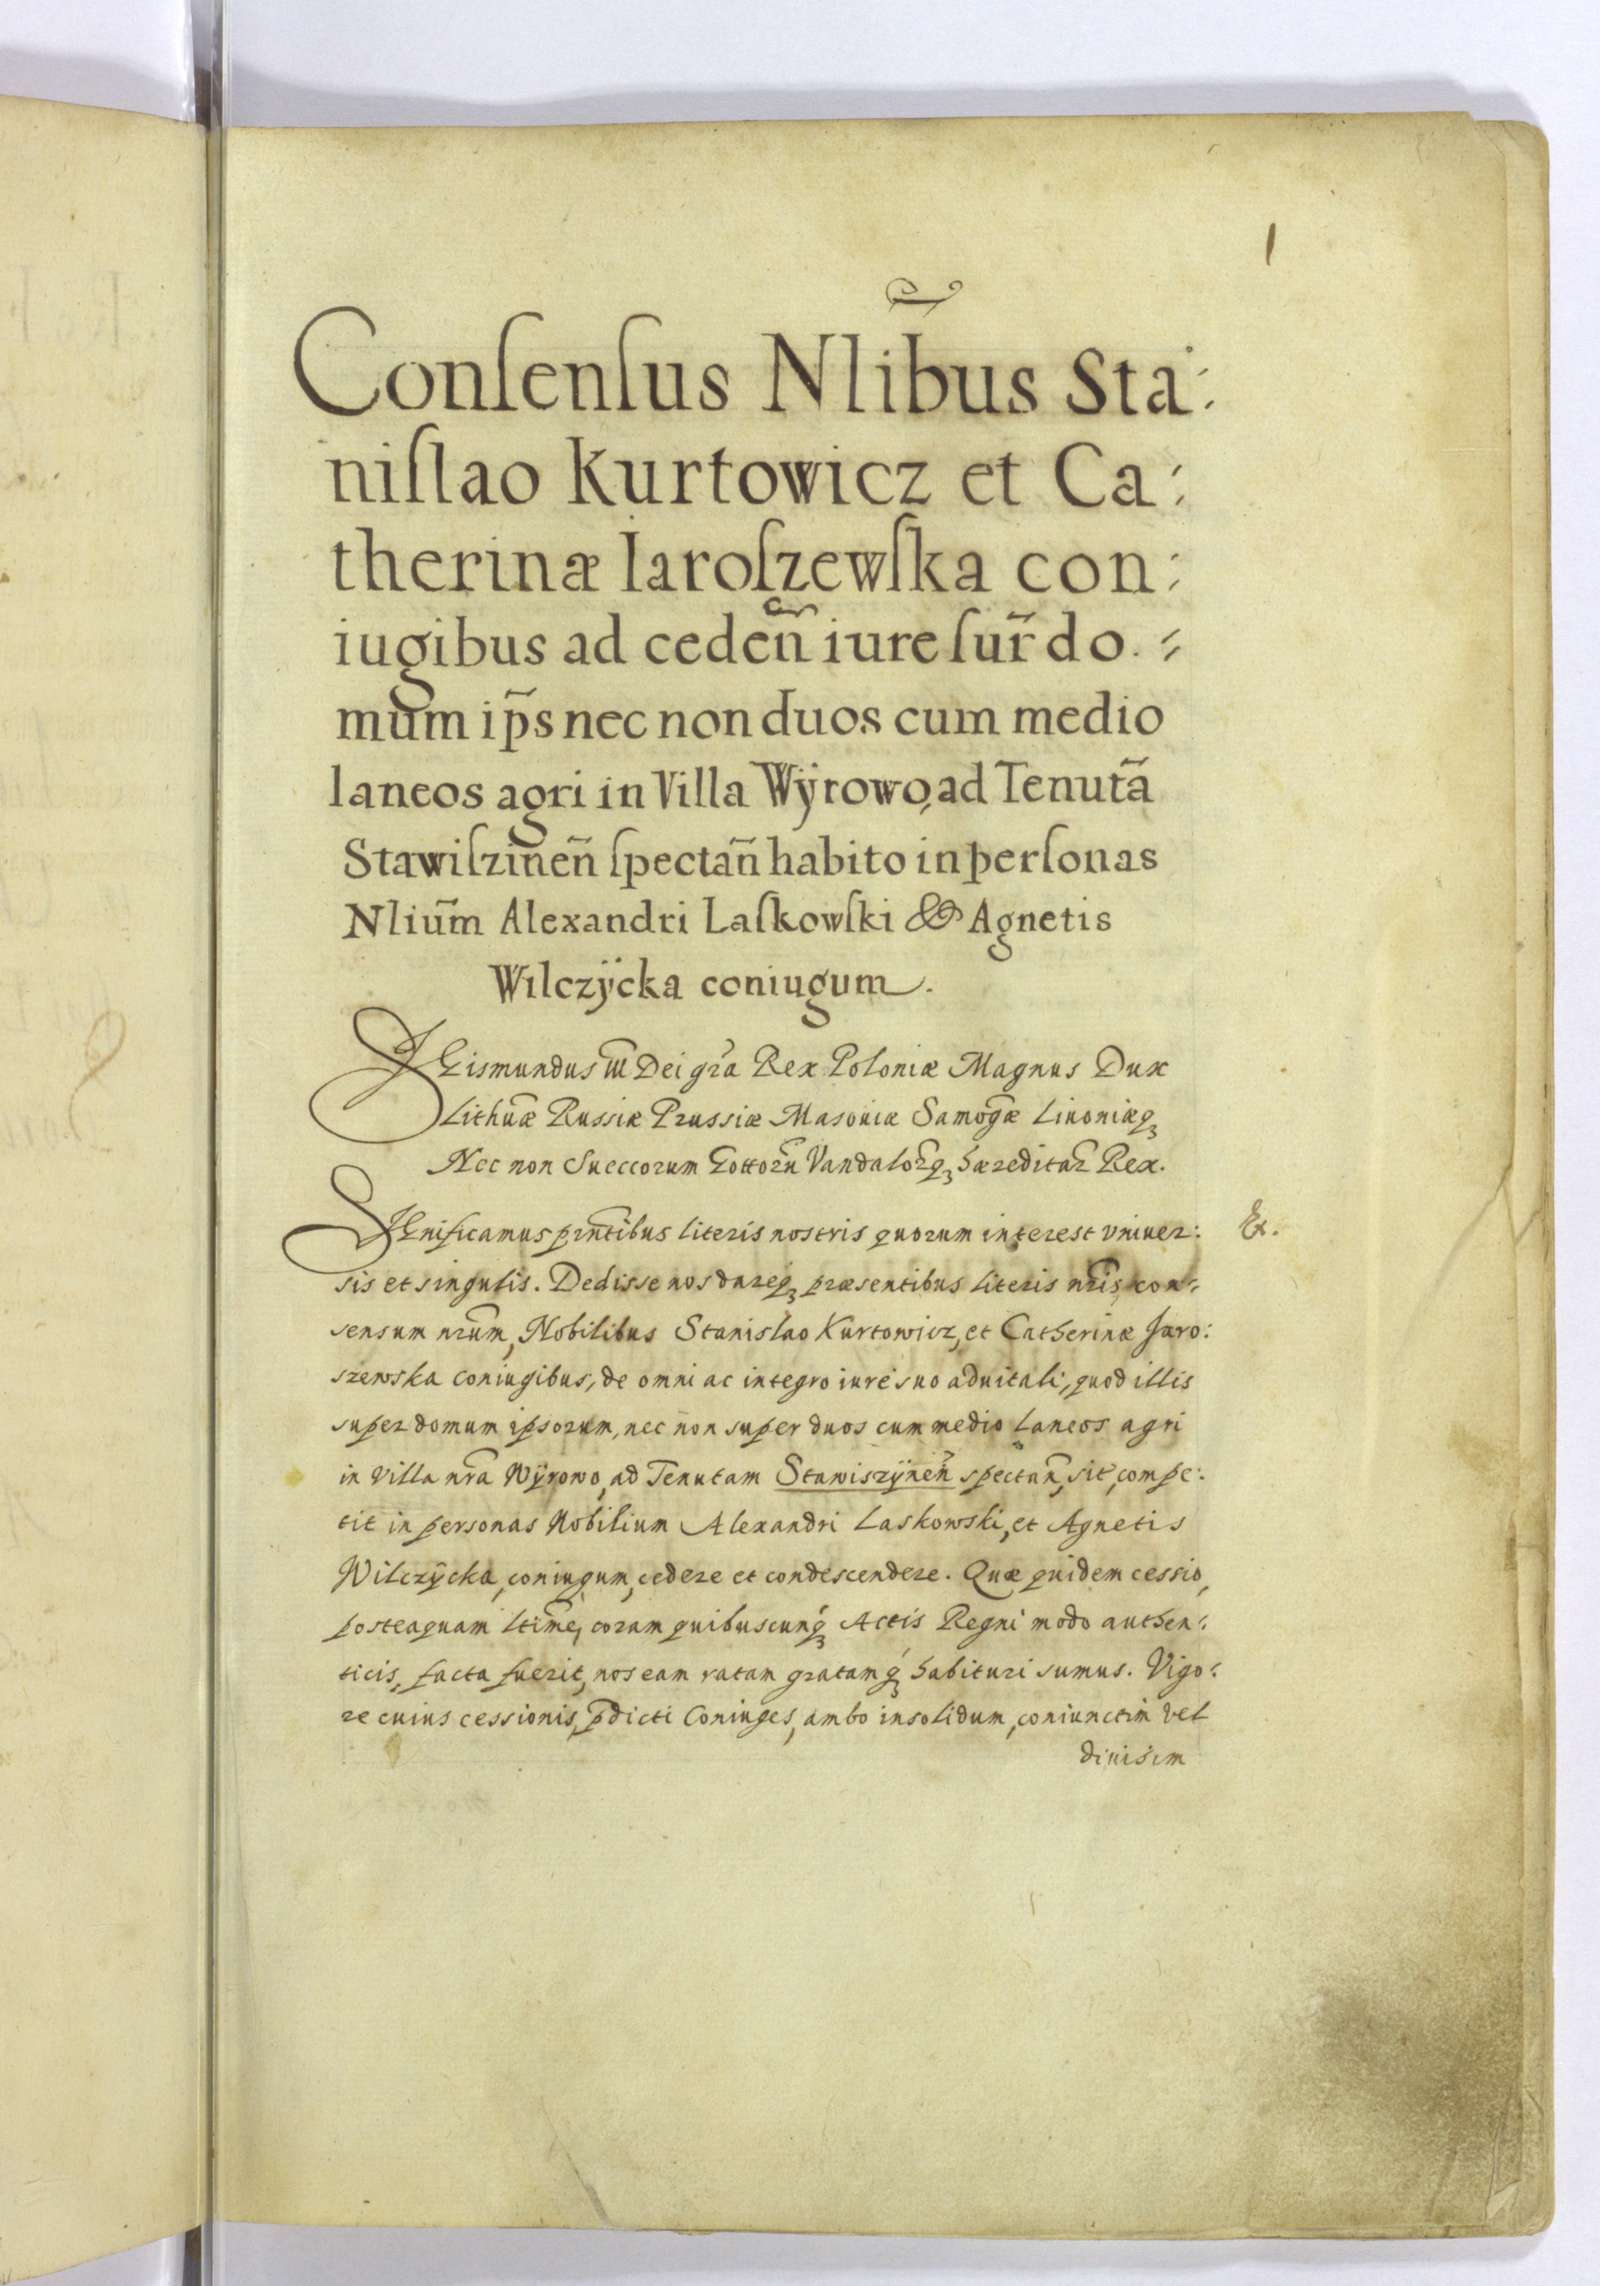 1
Conſenſus Nlib̃us Sta:
niſlao Kurtowicz et Ca:
therinæ Iaroſzewſka con:
iugibus ad cedeñ iure ſur̃ do.:
mum ip̃s nec non duos cum medio
laneos agri in Villa Wÿrowo, ad Tenutã
Stawiſzineñ ſpectañ habito in perſonas
Nliũm Alexandri Laſkowſki & Agnetis
Wilczÿcka coniugum.
SIGismundus III Dei gr̃a Rex Poloniæ Magnus Dux
Lithuæ Russiæ Prussiæ Masouiæ Samog̃æ Liuoniæq₃
Nec non Sueccorum Gottor̃u Vandalor̃q₃ hæreditar̃ Rex.
SIGnificamus pr̃ntibus literis nostris quorum interest vniuer:
&.
sis et singulis. Dedisse nos dareq₃ præsentibus literis nr̃is, con:
sensum nr̃um, Nobilibus Stanislao Kurtowicz, et Catherinæ Jaro:
szewska coniugibus, de omni ac integro iure suo aduitali, quod illis
super domum ipsorum, nec non super duos cum medio laneos agri
in villa nr̃a Wÿrowo, ad Tenutam Stawiszÿneñ spectañ, sit, compe:
tit in personas Nobilium Alexandri Laskowski, et Agnetis
Wilczÿcka, coniugum, cedere et condescendere. Quæ quidem cessio,
posteaquam ltim̃e, coram quibuscunq₃ Actis Regni modo authen:
ticis, facta fuerit, nos eam ratam gratamq₃ habituri sumus. Vigo:
re cuius cessionis, p̃dicti Coniuges, ambo insolidum, coniunctim vel
diuisim